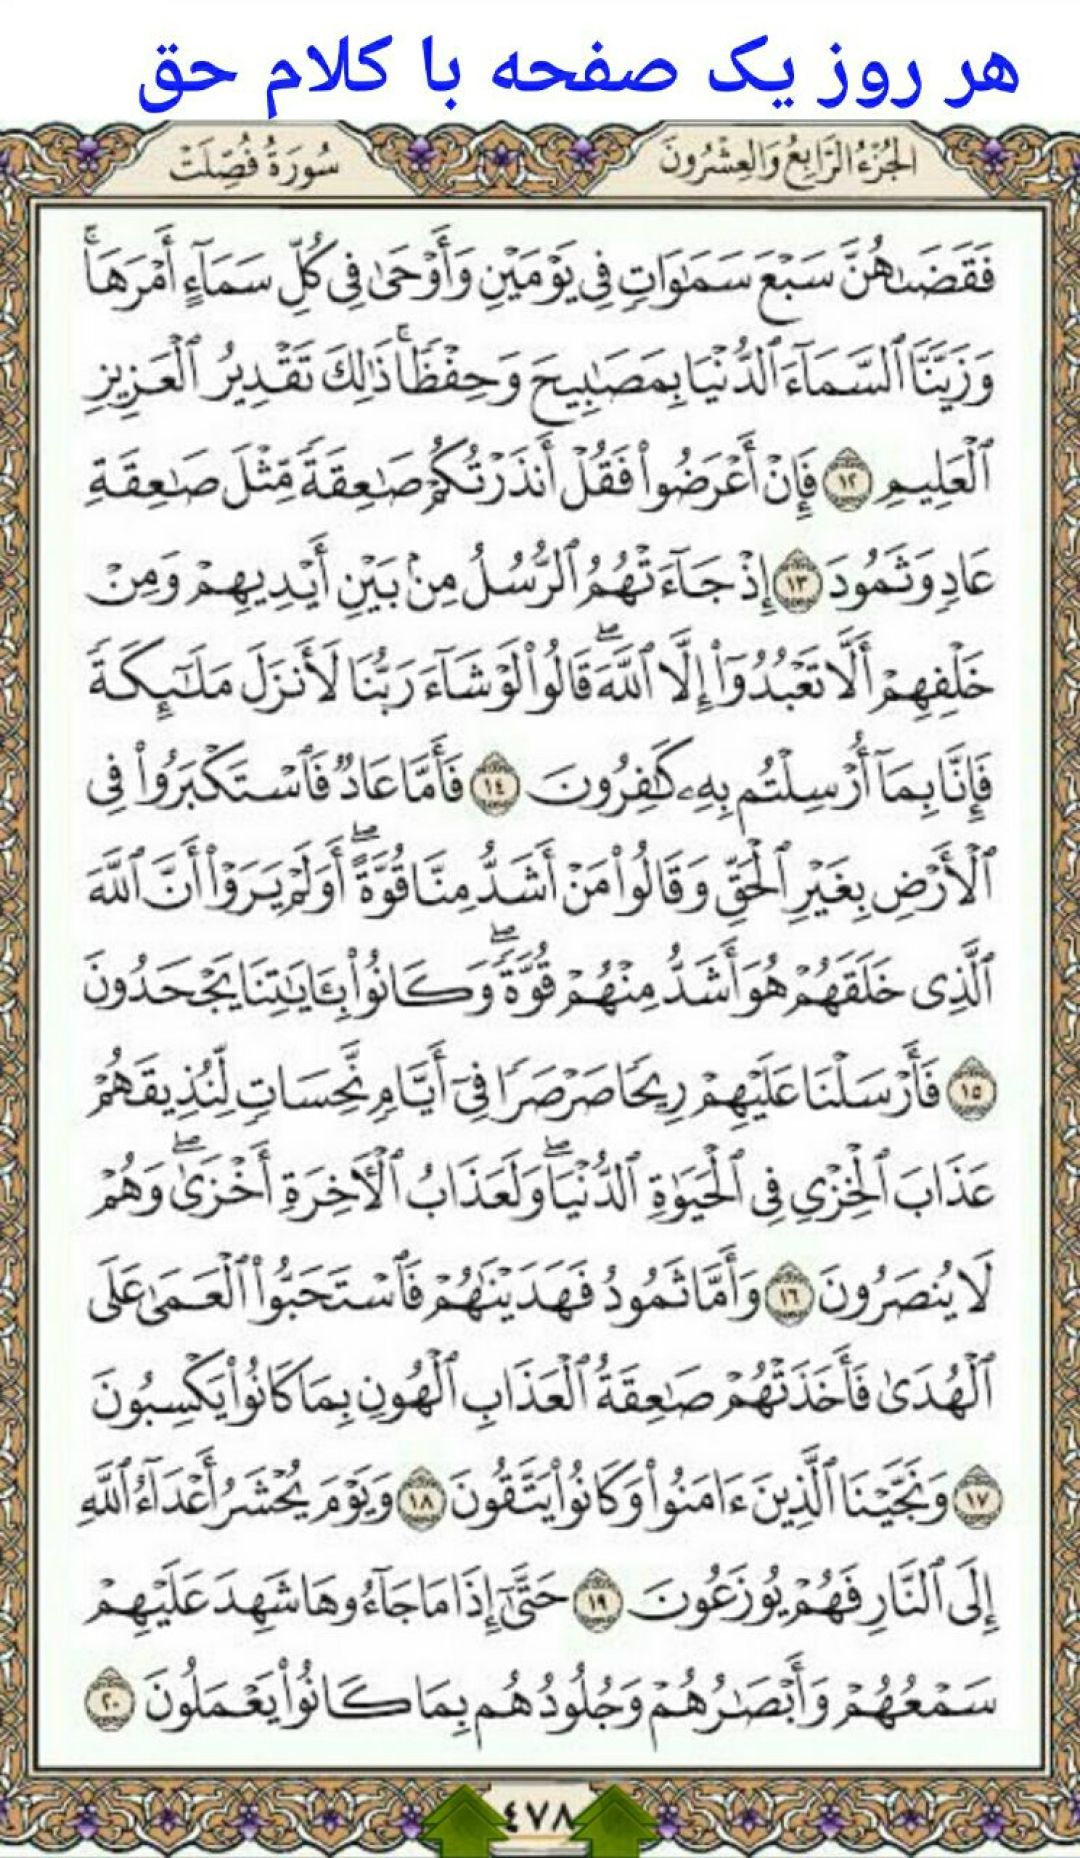 هر روز یک صفحه با کلام حق
الجُزْءُ الرَّابِعُ وَالعِشْرُونَ
سُورَةُ فُصِّلَتْ
فَقَضَىٰهُنَّ سَبْعَ سَمَٰوَاتٖ فِي يَوْمَيْنِ وَأَوْحَىٰ فِي كُلِّ سَمَآءٍ أَمْرَهَاۚ
وَزَيَّنَّا ٱلسَّمَآءَ ٱلدُّنْيَا بِمَصَٰبِيحَ وَحِفْظٗاۚ ذَٰلِكَ تَقْدِيرُ ٱلْعَزِيزِ
ٱلْعَلِيمِ ١٢ فَإِنْ أَعْرَضُوا۟ فَقُلْ أَنذَرْتُكُمْ صَٰعِقَةٗ مِّثْلَ صَٰعِقَةِ
عَادٖ وَثَمُودَ ١٣ إِذْ جَآءَتْهُمُ ٱلرُّسُلُ مِنۢ بَيْنِ أَيْدِيهِمْ وَمِنْ
خَلْفِهِمْ أَلَّا تَعْبُدُوٓا۟ إِلَّا ٱللَّهَۖ قَالُوا۟ لَوْ شَآءَ رَبُّنَا لَأَنزَلَ مَلَٰٓئِكَةٗ
فَإِنَّا بِمَآ أُرْسِلْتُم بِهِۦ كَٰفِرُونَ ١٤ فَأَمَّا عَادٞ فَٱسْتَكْبَرُوا۟ فِي
ٱلْأَرْضِ بِغَيْرِ ٱلْحَقِّ وَقَالُوا۟ مَنْ أَشَدُّ مِنَّا قُوَّةًۖ أَوَلَمْ يَرَوْا۟ أَنَّ ٱللَّهَ
ٱلَّذِي خَلَقَهُمْ هُوَ أَشَدُّ مِنْهُمْ قُوَّةٗۖ وَكَانُوا۟ بِـَٔايَٰتِنَا يَجْحَدُونَ
١٥ فَأَرْسَلْنَا عَلَيْهِمْ رِيحٗا صَرْصَرٗا فِيٓ أَيَّامٖ نَّحِسَاتٖ لِّنُذِيقَهُمْ
عَذَابَ ٱلْخِزْيِ فِي ٱلْحَيَوٰةِ ٱلدُّنْيَاۖ وَلَعَذَابُ ٱلْأٓخِرَةِ أَخْزَىٰۖ وَهُمْ
لَا يُنصَرُونَ ١٦ وَأَمَّا ثَمُودُ فَهَدَيْنَٰهُمْ فَٱسْتَحَبُّوا۟ ٱلْعَمَىٰ عَلَى
ٱلْهُدَىٰ فَأَخَذَتْهُمْ صَٰعِقَةُ ٱلْعَذَابِ ٱلْهُونِ بِمَا كَانُوا۟ يَكْسِبُونَ
١٧ وَنَجَّيْنَا ٱلَّذِينَ ءَامَنُوا۟ وَكَانُوا۟ يَتَّقُونَ ١٨ وَيَوْمَ يُحْشَرُ أَعْدَآءُ ٱللَّهِ
إِلَى ٱلنَّارِ فَهُمْ يُوزَعُونَ ١٩ حَتَّىٰٓ إِذَا مَا جَآءُوهَا شَهِدَ عَلَيْهِمْ
سَمْعُهُمْ وَأَبْصَٰرُهُمْ وَجُلُودُهُم بِمَا كَانُوا۟ يَعْمَلُونَ ٢٠
٤٧٨